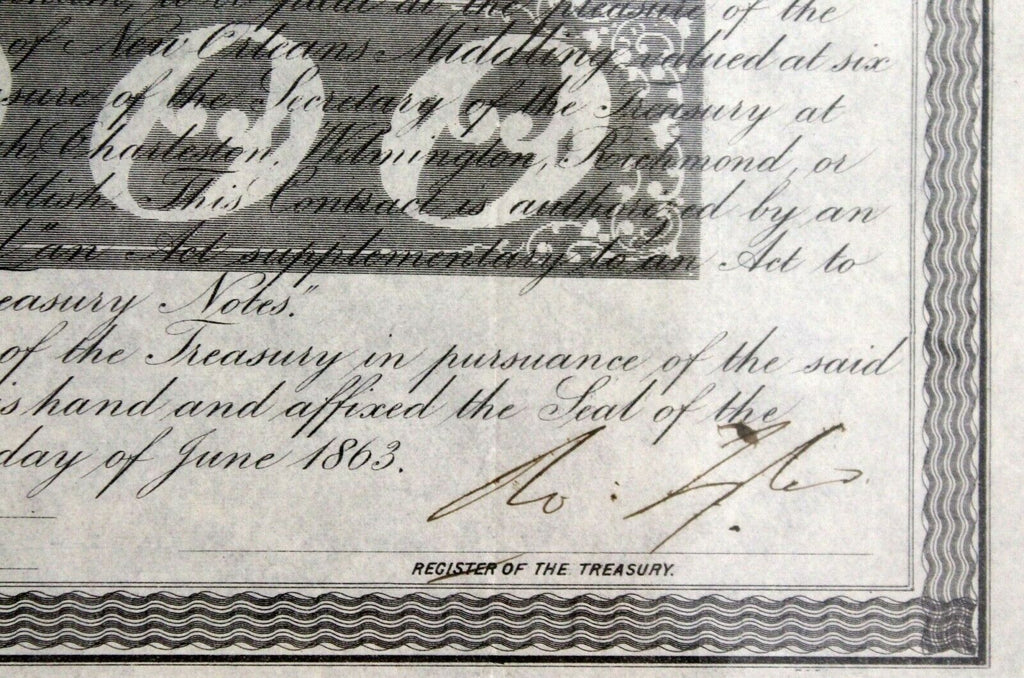 it is paid at the pleasure of the
of New Orleans Middling valued at six
asure of the Secretary of the Treasury at
h, Charleston, Wilmington, Richmond, or
ablish. This Contract is authorized by an
"an Act supplementary to an Act to
easury Notes."
of the Treasury in pursuance of the said
is hand and affixed the Seal of the
day of June 1863.
Ro: Tyler
REGISTER OF THE TREASURY.
000